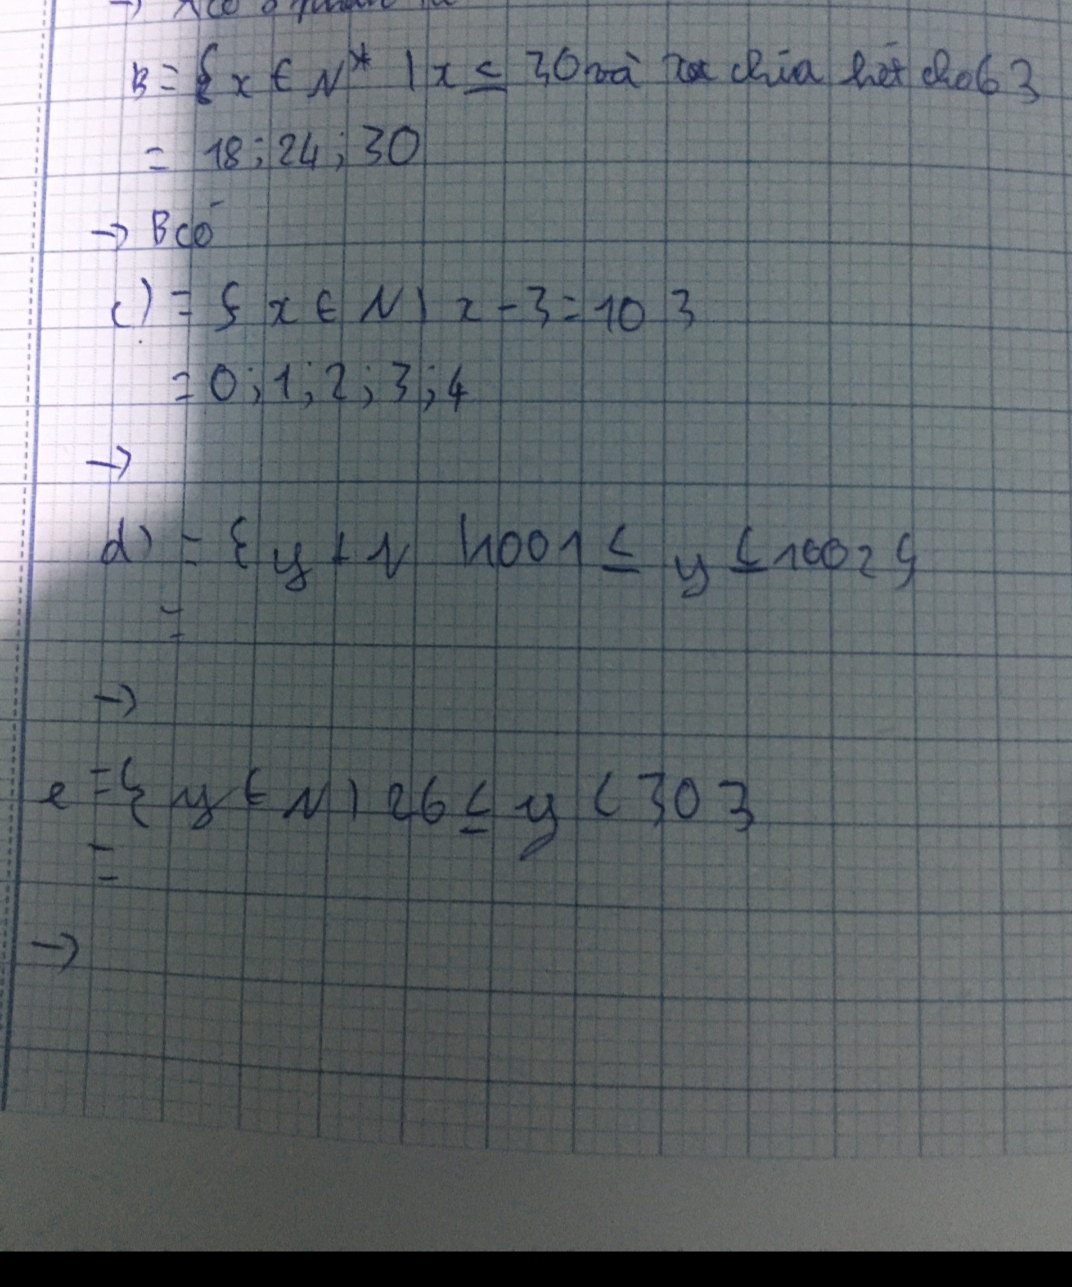 B = { x ∈ N* | x ≤ 30 mà x chia hết cho 6 }
= 18 ; 24 ; 30
→ B có
c) = { x ∈ N | x - 3 = 10 }
= 0 ; 1 ; 2 ; 3 ; 4
→
d) = { y ∈ N | 1001 ≤ y ≤ 1002 }
=
→
e = { y ∈ N | 26 ≤ y < 30 }
=
→